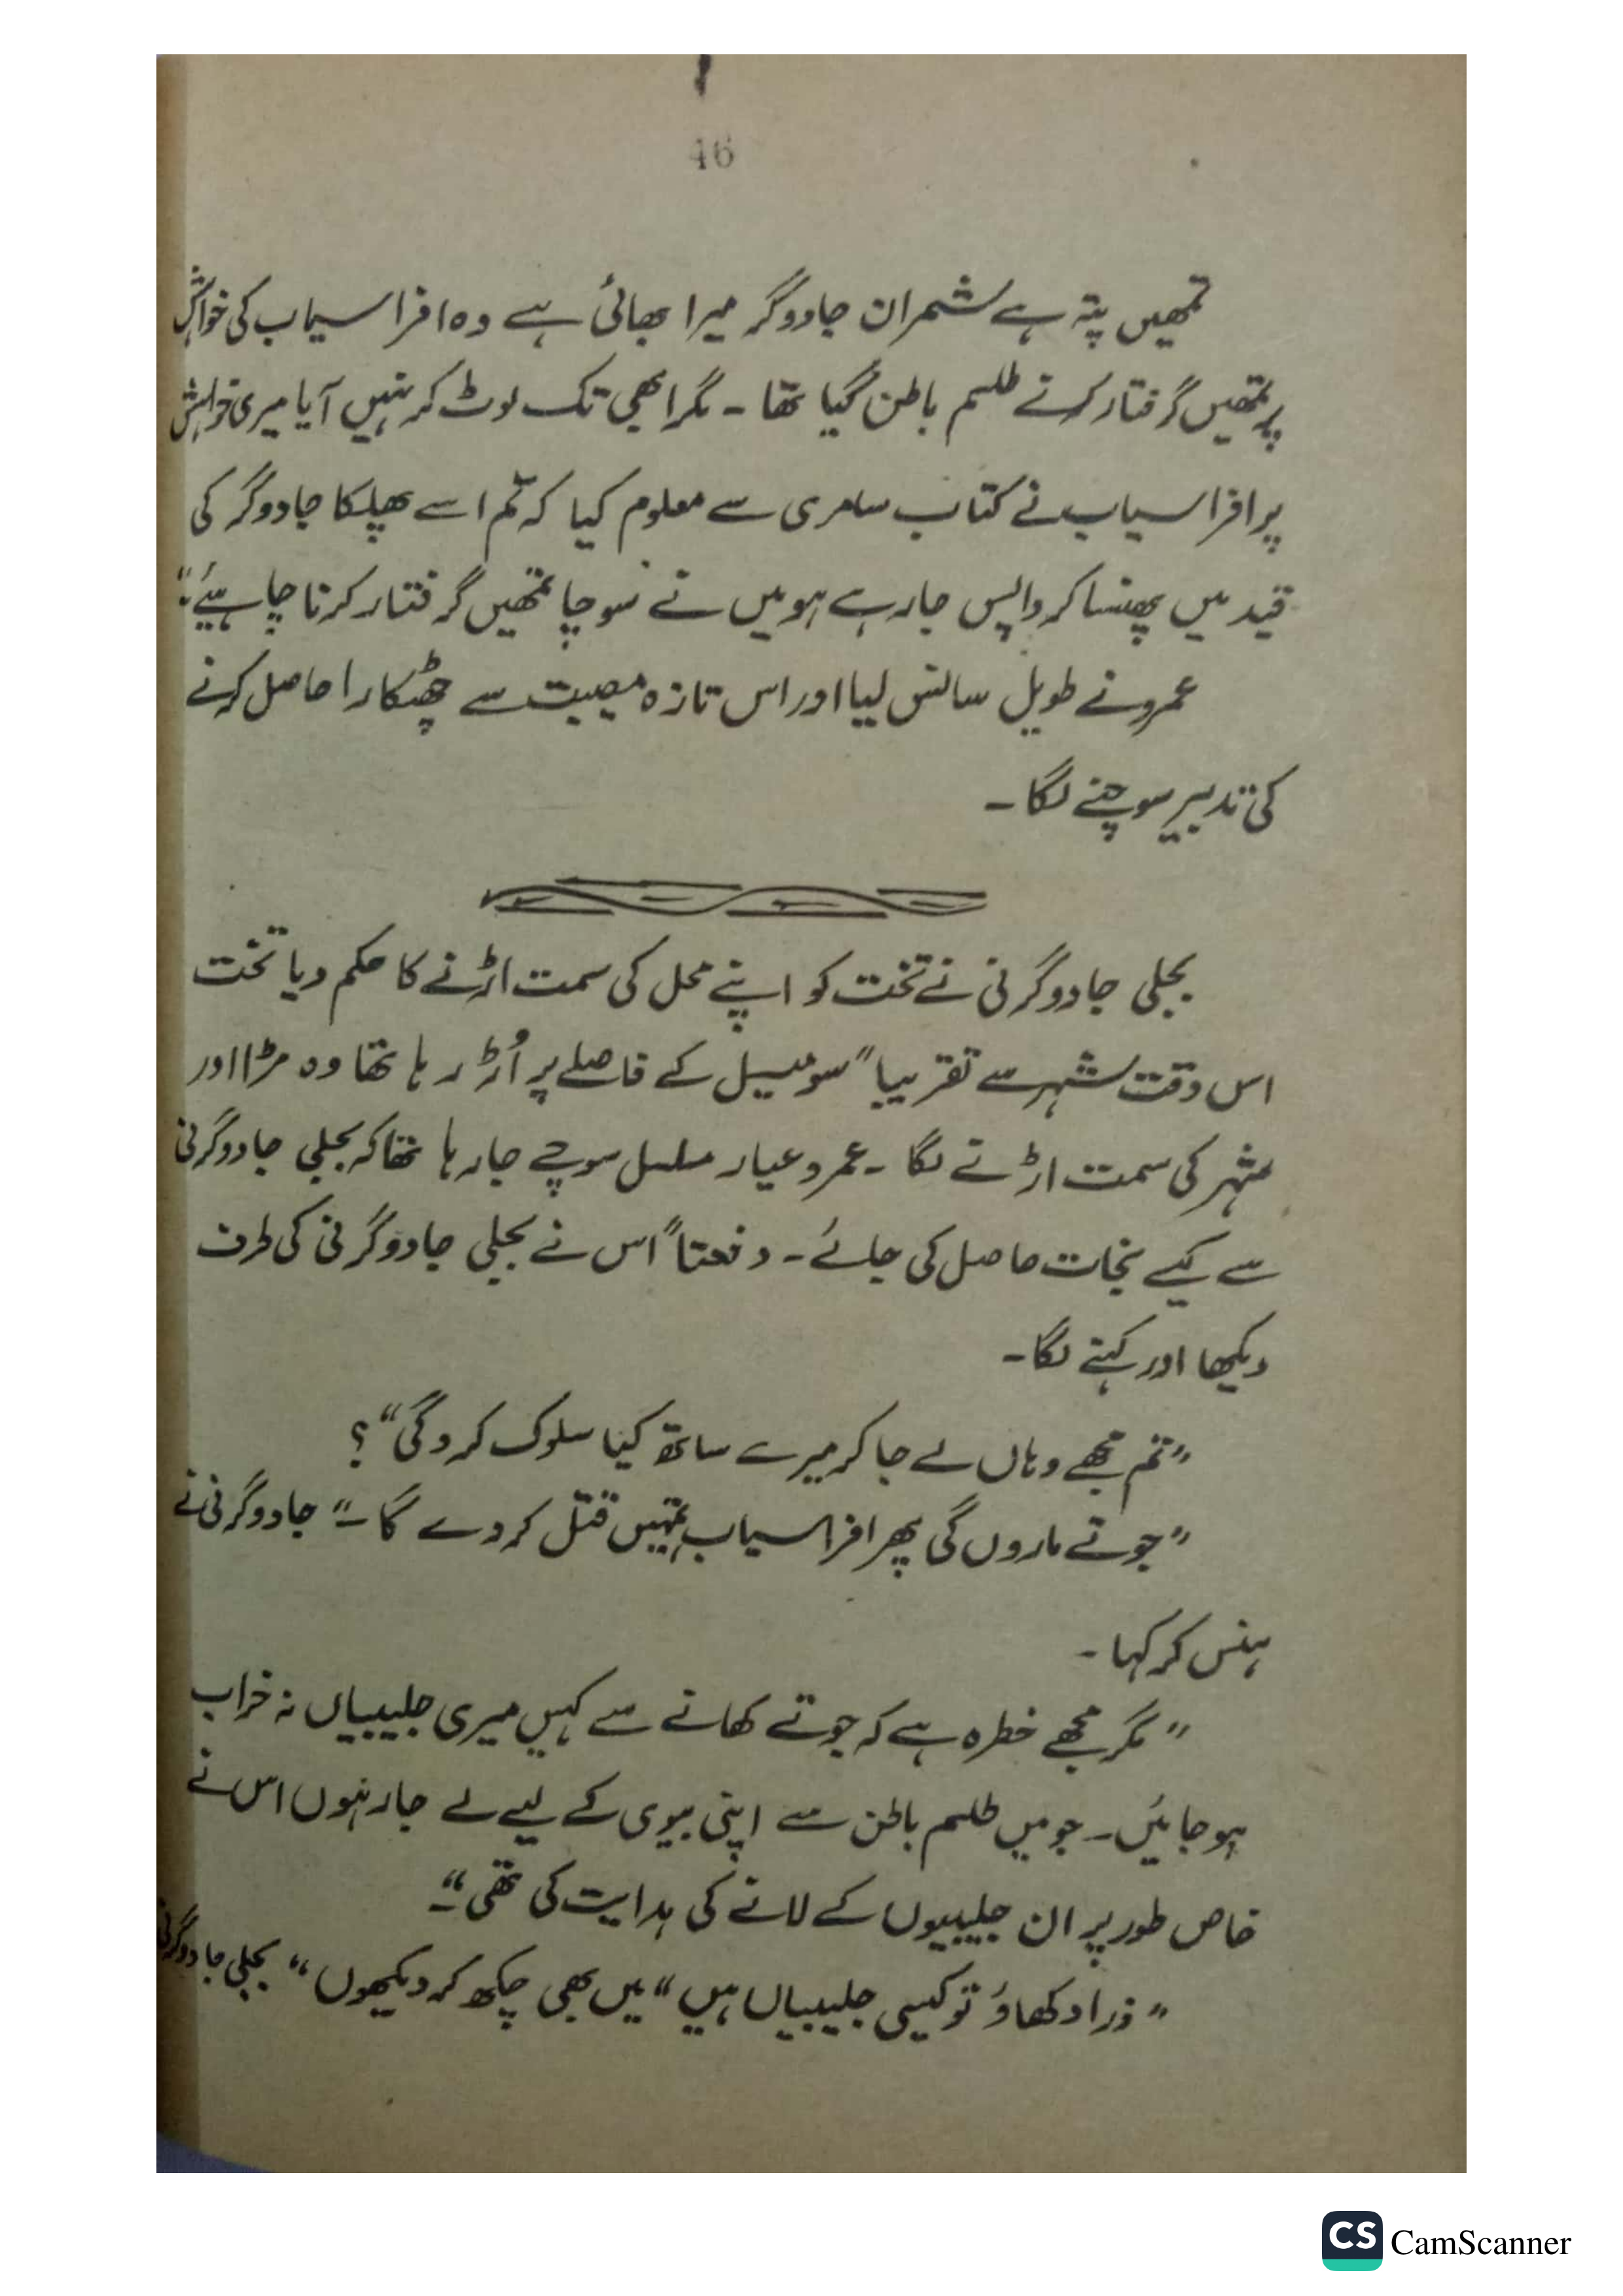 46
تمھیں پتہ ہے شمران جادوگر میرا بھائی ہے وہ افراسیاب کی خواہش
پر تمھیں گرفتار کرنے طلسم باطن گیا تھا ۔ مگر ابھی تک لوٹ کر نہیں آیا میری خواہش
پر افراسیاب نے کتاب سامری سے معلوم کیا کہ تم اسے پھلکا جادوگر کی
قید میں پھنسا کر واپس جا رہے ہو میں نے سوچا تمھیں گرفتار کرنا چاہیئے"
عمرو نے طویل سانس لیا اور اس تازہ مصیبت سے چھٹکارا حاصل کرنے
کی تدبیر سوچنے لگا ۔
بجلی جادوگرنی نے تخت کو اپنے محل کی سمت اڑنے کا حکم دیا تخت
اس وقت شہر سے تقریبا" سو میل کے فاصلے پر اُڑ رہا تھا وہ مڑا اور
شہر کی سمت اڑنے لگا ۔ عمرو عیار مسلسل سوچے جا رہا تھا کہ بجلی جادوگرنی
سے کیسے نجات حاصل کی جائے ۔ دفعتاً اس نے بجلی جادوگرنی کی طرف
دیکھا اور کہنے لگا ۔
"تم مجھے وہاں لے جا کر میرے ساتھ کیا سلوک کرو گی"؟
"جوتے ماروں گی پھر افراسیاب تمہیں قتل کر دے گا ۔" جادوگرنی نے
ہنس کر کہا ۔
"مگر مجھے خطرہ ہے کہ جوتے کھانے سے کہیں میری جلیبیاں نہ خراب
ہو جائیں ۔ جو میں طلسم باطن سے اپنی بیوی کے لیے لے جا رہا ہوں اس نے
خاص طور پر ان جلیبیوں کے لانے کی ہدایت کی تھی ۔"
"ذرا دکھاؤ تو کیسی جلیبیاں ہیں" میں بھی چکھ کر دیکھوں" بجلی جادوگرنی
CS CamScanner